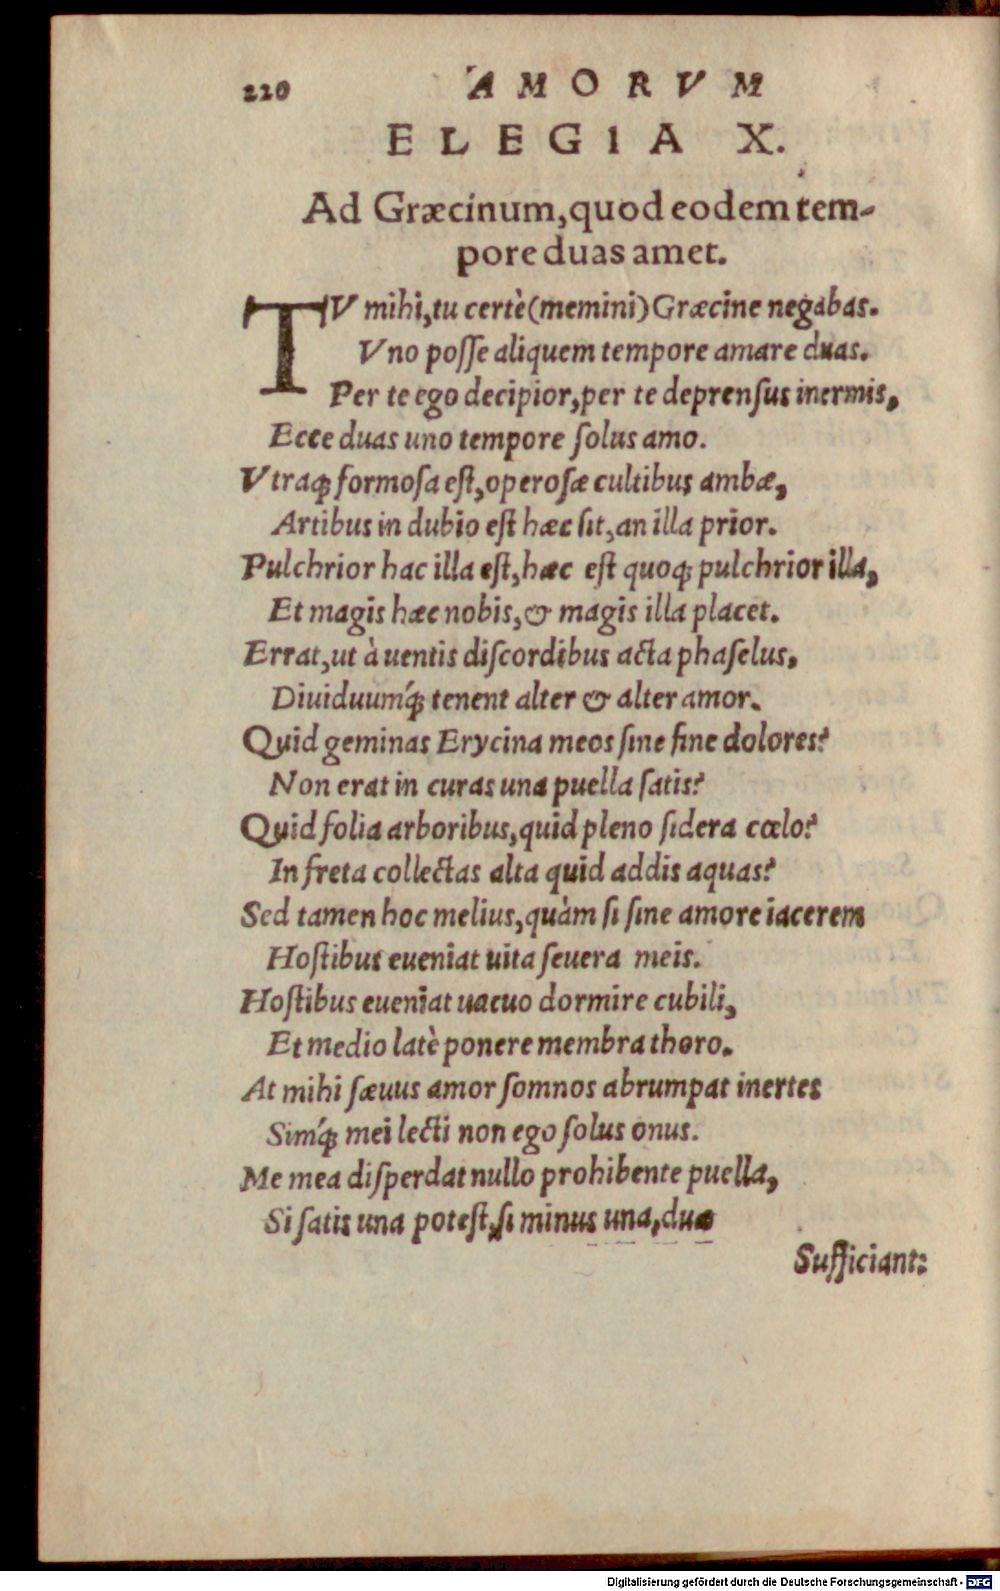 220 AMORVM
ELEGIA X.
Ad Græcinum,quod eodem tem-
pore duas amet.
TV mihi,tu certè(memini)Græcine negabas.
Vno poſſe aliquem tempore amare duas.
Per te ego decipior,per te deprenſus inermis,
Ecce duas uno tempore ſolus amo.
Vtraqꝫ formoſa eſt,operoſæ cultibus ambæ,
Artibus in dubio eſt hæc ſit,an illa prior.
Pulchrior hac illa eſt,hæc eſt quoqꝫ pulchrior illa,
Et magis hæc nobis,& magis illa placet.
Errat,ut à uentis diſcordibus acta phaſelus,
Diuiduumq́ꝫ tenent alter & alter amor.
Quid geminas Erycina meos ſine fine dolores?
Non erat in curas una puella ſatis?
Quid folia arboribus,quid pleno ſidera cœlo?
In freta collectas alta quid addis aquas?
Sed tamen hoc melius,quàm ſi ſine amore iacerem
Hoſtibus eueniat uita ſeuera meis.
Hoſtibus eueniat uacuo dormire cubili,
Et medio latè ponere membra thoro.
At mihi ſæuus amor ſomnos abrumpat inertes
Simq́ꝫ mei lecti non ego ſolus onus.
Me mea diſperdat nullo prohibente puella,
Si ſatis una poteſt,ſi minus una,duæ
Sufficiant:
Digitalisierung gefördert durch die Deutsche Forschungsgemeinschaft - DFG